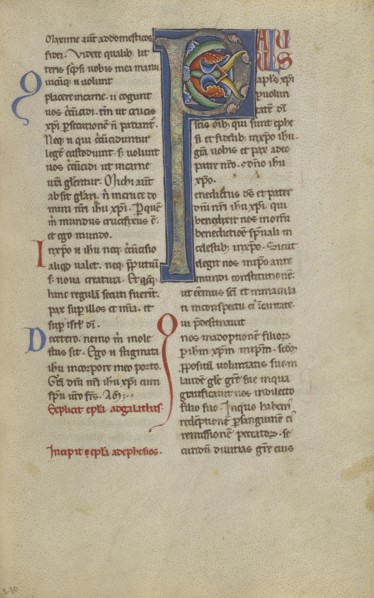 Maxime aut addomesticos
fidei. Videte qualib; lit
teris scpsi uobis mea manu
uicuq; n uolunt
placere incarne. ii cogunt
uos circucidi. tm ut crucis
xpi psecutione n patiant.
Neq; n qui circuciduntur
lege custodiunt. s; uolunt
uos circucidi ut incarne
ura glentur. Michi aut
absit glari. n incruce do
mini nri ihu xpi. P que
m mundus crucifixus e.
et ego mundo.
Inxpo n ihu neq; circucisio
aliqd ualet. neq; pputiu
s; noua creatura. Et qcuq;
hunc regula secuti fuerint.
pax sup illos et mia. et
sup isrl di.
Decetero. nemo m moles
tus sit. Ego n stigmata
ihu incorpore meo porto.
Gra dni nri ihu xpi cum
spu uro frs. Am.
Explicit epla adgalathas.
Incipit epla adephesios.
PAU
LUS
apls xpi
ihu p uolun
tate di
scis oib; qui sunt ephe
si et fidelib; inxpo ihu
gra uobis et pax adeo
patre nro. et dno ihu
xpo.
Benedictus ds et pater
dni nri ihu xpi. qui
benedixit nos inomi
benedictione spuali in
celestib; inxpo. Sicut
elegit nos inipo ante
mundi constitutione.
ut essemus sci et inmacula
ti inconspectu ei incaritate.
Qui pdestinauit
nos inadoptione filior
p ihm xpm inipm. scdm
ppositu uoluntatis sue in
laude gle gre sue inqua
gratificauit nos indilecto
filio suo. Inquo habem
redeptione p sanguine ei
remissione peccator. se
cundu diuitias gre eius